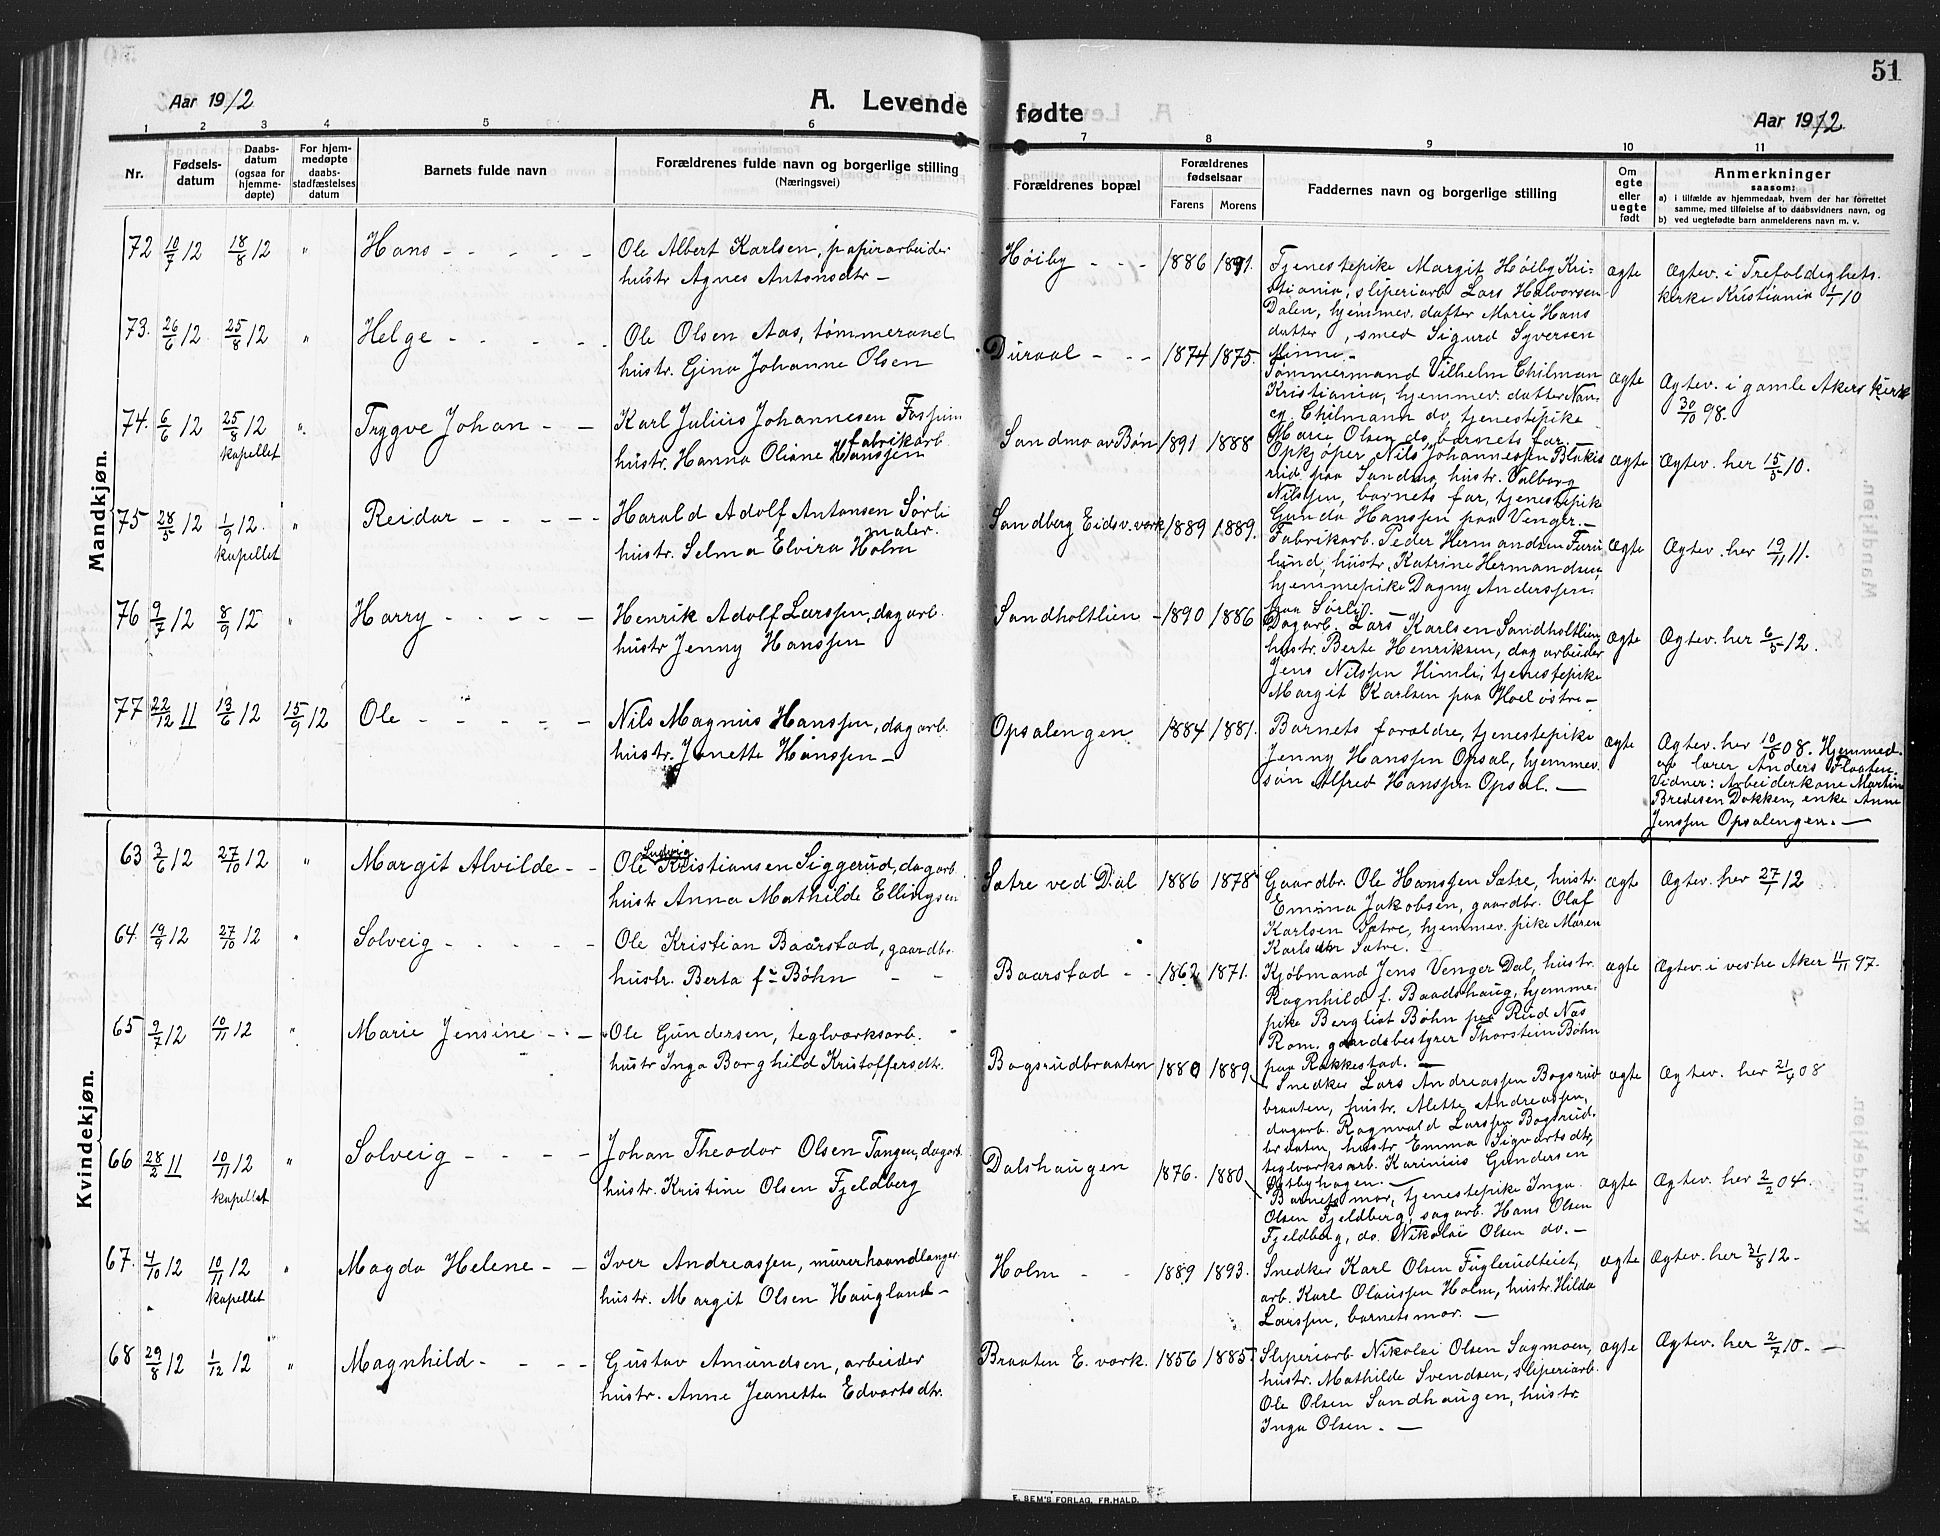 51
Aar 1912
A. Levende fødte
Aar 1912
1 2 3 4 5 6 7 8 9 10 11
Nr.
Fødsels-
datum
Daabs-
datum
(ogsaa for
hjemme-
døpte)
For hjem-
medøpte
daabs-
stadfæstelses
datum
Barnets fulde navn
Forældrenes fulde navn og borgerlige stilling
(Næringsvei)
Forældrenes bopæl
Forældrenes
fødselsaar
Farens Morens
Faddernes navn og borgerlige stilling
Om
egte
eller
uegte
født
Anmerkninger
saasom:
a) i tilfælde av hjemmedaab, hvem der har forrettet
samme, med tilføielse af to daabsvidners navn, og
b) ved uegtefødte barn anmelderens navn m. v.
Mandkjøn.
72 10/7 12 18/8 12 " Hans
Ole Albert Karlsen, papirarbeider
hustr Agnes Antonsdtr -
Høiby 1886 1891.
Tjenestepike Margit Høiby Kri-
stiania, sliperiarb Lars Halvorsen
Dalen, hjemmev. datter Marie Hans
datter, smed Sigurd Syversen
Minne. -
ægte
Ægtev. i Trefoldigheds.
kirke Kristiania 1/1 10
73. 26/6 12 25/8 12 " Helge
Ole Olsen Aas, tømmermand
hustr. Gina Johanne Olsen
Duraal 1874 1875.
Tømmermand Vilhelm Chilman
Kristiania, hjemmev. datter Nan-
cy Chilmann do, tjenestepike
Marie Olsen do, barnets far.
ægte
Ægtev. i gamle Akers kirke
30/10 98.
74. 6/6 12 25/8 12 " Trygve Johan
kapellet
Karl Julius Johannesen Fossum
fabrikarb
hustr. Hanna Oliane Hanssen
Sandmo av Bøn 1891 1888
Opkjøper Nils Johannessen Blakis
rud paa Sandmo, hustr. Valborg
Nilssen, barnets far, tjenestepik
Gunda Hanssen paa Venger. -
ægte
Ægtev. her 15/5 10.
75 28/5 12 1/9 12. " Reidar
kapellet
Harald Adolf Antonsen Sørli
maler.
hustr. Selma Elvira Holm
Sandberg Eidsv. værk 1889 1889.
Fabrikarb. Peder Hermandsen Furu
lund, hustr. Katrine Hermandsen,
hjemmepike Dagny Anderssen
paa Sørli.
ægte
Ægtev. her 19/11 11.
76 9/7 12 8/9 12 " Harry
Henrik Adolf Larssen, dagarb.
hustr Jenny Hanssen
Sandholtlien 1890 1886
Dagarb. Lars Karlsen Sandholtlien
hustr. Berte Henriksen, dagarbeider
Jens Nilssen Himli, tjenestepike
Margit Karlsen paa Hoel østre -
ægte
Ægtev. her 6/5 12.
77 22/12 11 13/6 12 15/9 12 Ole
Nils Magnus Hanssen, dagarb.
hustr. Janette Hanssen -
Opsalengen 1884 1881.
Barnets foreldre, tjenestepike
Jenny Hanssen Opsal, hjemmev.
søn Alfred Hanssen Opsal. -
ægte
Ægtev. her 10/5 08. Hjemmed.
av lærer Anders Flaaten.
Vidner: Arbeiderkone Martin
Bredesen Dokken, enke Anne
Jenssen Opsalengen. -
Kvindekjøn.
63 3/6 12 27/10 12 " Margit Alvilde
Ludvig
Ole Kristiansen Siggerud, dagarb
hustr Anna Mathilde Ellingsen
Sætre ved Dal 1886 1878
Gaardbr. Ole Hanssen Sætre, hustr.
Emma Jakobsen, gaardbr. Olaf
Karlsen Sætre, hjemmev. pike Maren
Karlsdtr Sætre. -
ægte
Ægtev. her 27/1 12
64. 19/9 12 27/10 12 " Solveig
Ole Kristian Baarstad, gaardbr.
hustr. Berta f. Bøhn
Baarstad 1862 1871.
Kjøbmand Jens Venger Dal, hustr.
Ragnhild f. Baadshaug, hjemme-
pike Bergliot Bøhn paa Reid Nas
Rom. gaardsbestyrer Thorstein Bøhn
paa Rakkestad. -
ægte
Ægtev. i vestre Aker 11/11 97.
65 9/7 12 10/11 12 " Marie Jensine
Ole Gundersen, teglværksarb.
hustr Inga Borghild Kristoffersdtr.
Bogsrudbraaten 1880 1889
Snedker Lars Andreassen Bogsrud
braaten, hustr. Alette Andreassen,
dagarb. Ragnvald Larssen Bogsrud-
braaten, hustr. Emma Sigvartsdtr,
teglværksarb. Karinius Gundersen
Østbyhagen. -
ægte
Ægtev. her 21/4 08
66 28/2 11 10/11 12 " Solveig
kapellet
Johan Theodor Olsen Tangen, dagarb.
hustr. Kristine Olsen Fjeldberg
Dalshaugen 1876. 1880
Barnets mor, tjenestepike Inga
Olsen Fjeldberg, sagarb. Hans Olsen
Fjeldberg, do. Nikolai Olsen do. -
ægte
Ægtev. her 2/2 04.
67. 4/10 12 10/11 12 " Magda Helene
kapellet
Iver Andreassen, murerhaandlanger
hustr. Margit Olsen Haugland -
Holm 1889 1893.
Snedker Karl Olsen Fuglerudteiet,
arb. Karl Olaussen Holm, hustr. Hilda
Larssen, barnets mor. -
ægte
Ægtev. her 31/8 12 -
68 29/8 12 1/12 12 " Magnhild
Gustav Amundsen, arbeider
hustr. Anne Jeanette Edvartsdtr.
Braaten E. værk. 1856 1885
Sliperiarb Nikolai Olsen Sagmoen,
hustr. Mathilde Svendsen, sliperiarb.
Ole Olsen Sandhaugen, hustr.
Inga Olsen. -
ægte
Ægtev. her 2/7 10. -
E. SEM'S FORLAG, FR.HALD.